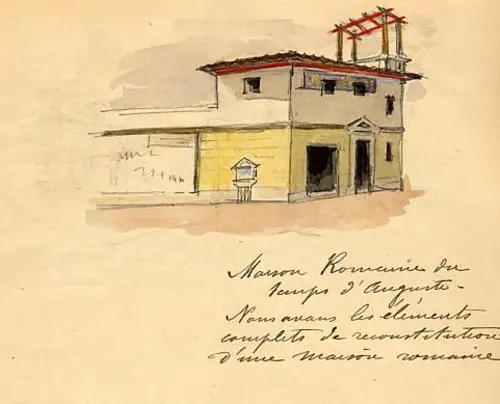 Maison Romaine du
temps d'Auguste -
Nous avons les éléments
complets de reconstitution
d'une maison romaine